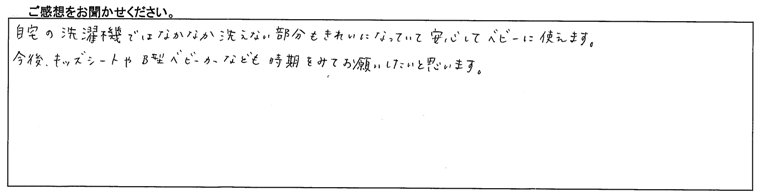 ご感想をお聞かせください。
自宅の洗濯機ではなかなか洗えない部分もきれいになっていて安心してベビーに使えます。
今後、キッズシートやB型ベビーカーなども時期をみてお願いしたいと思います。